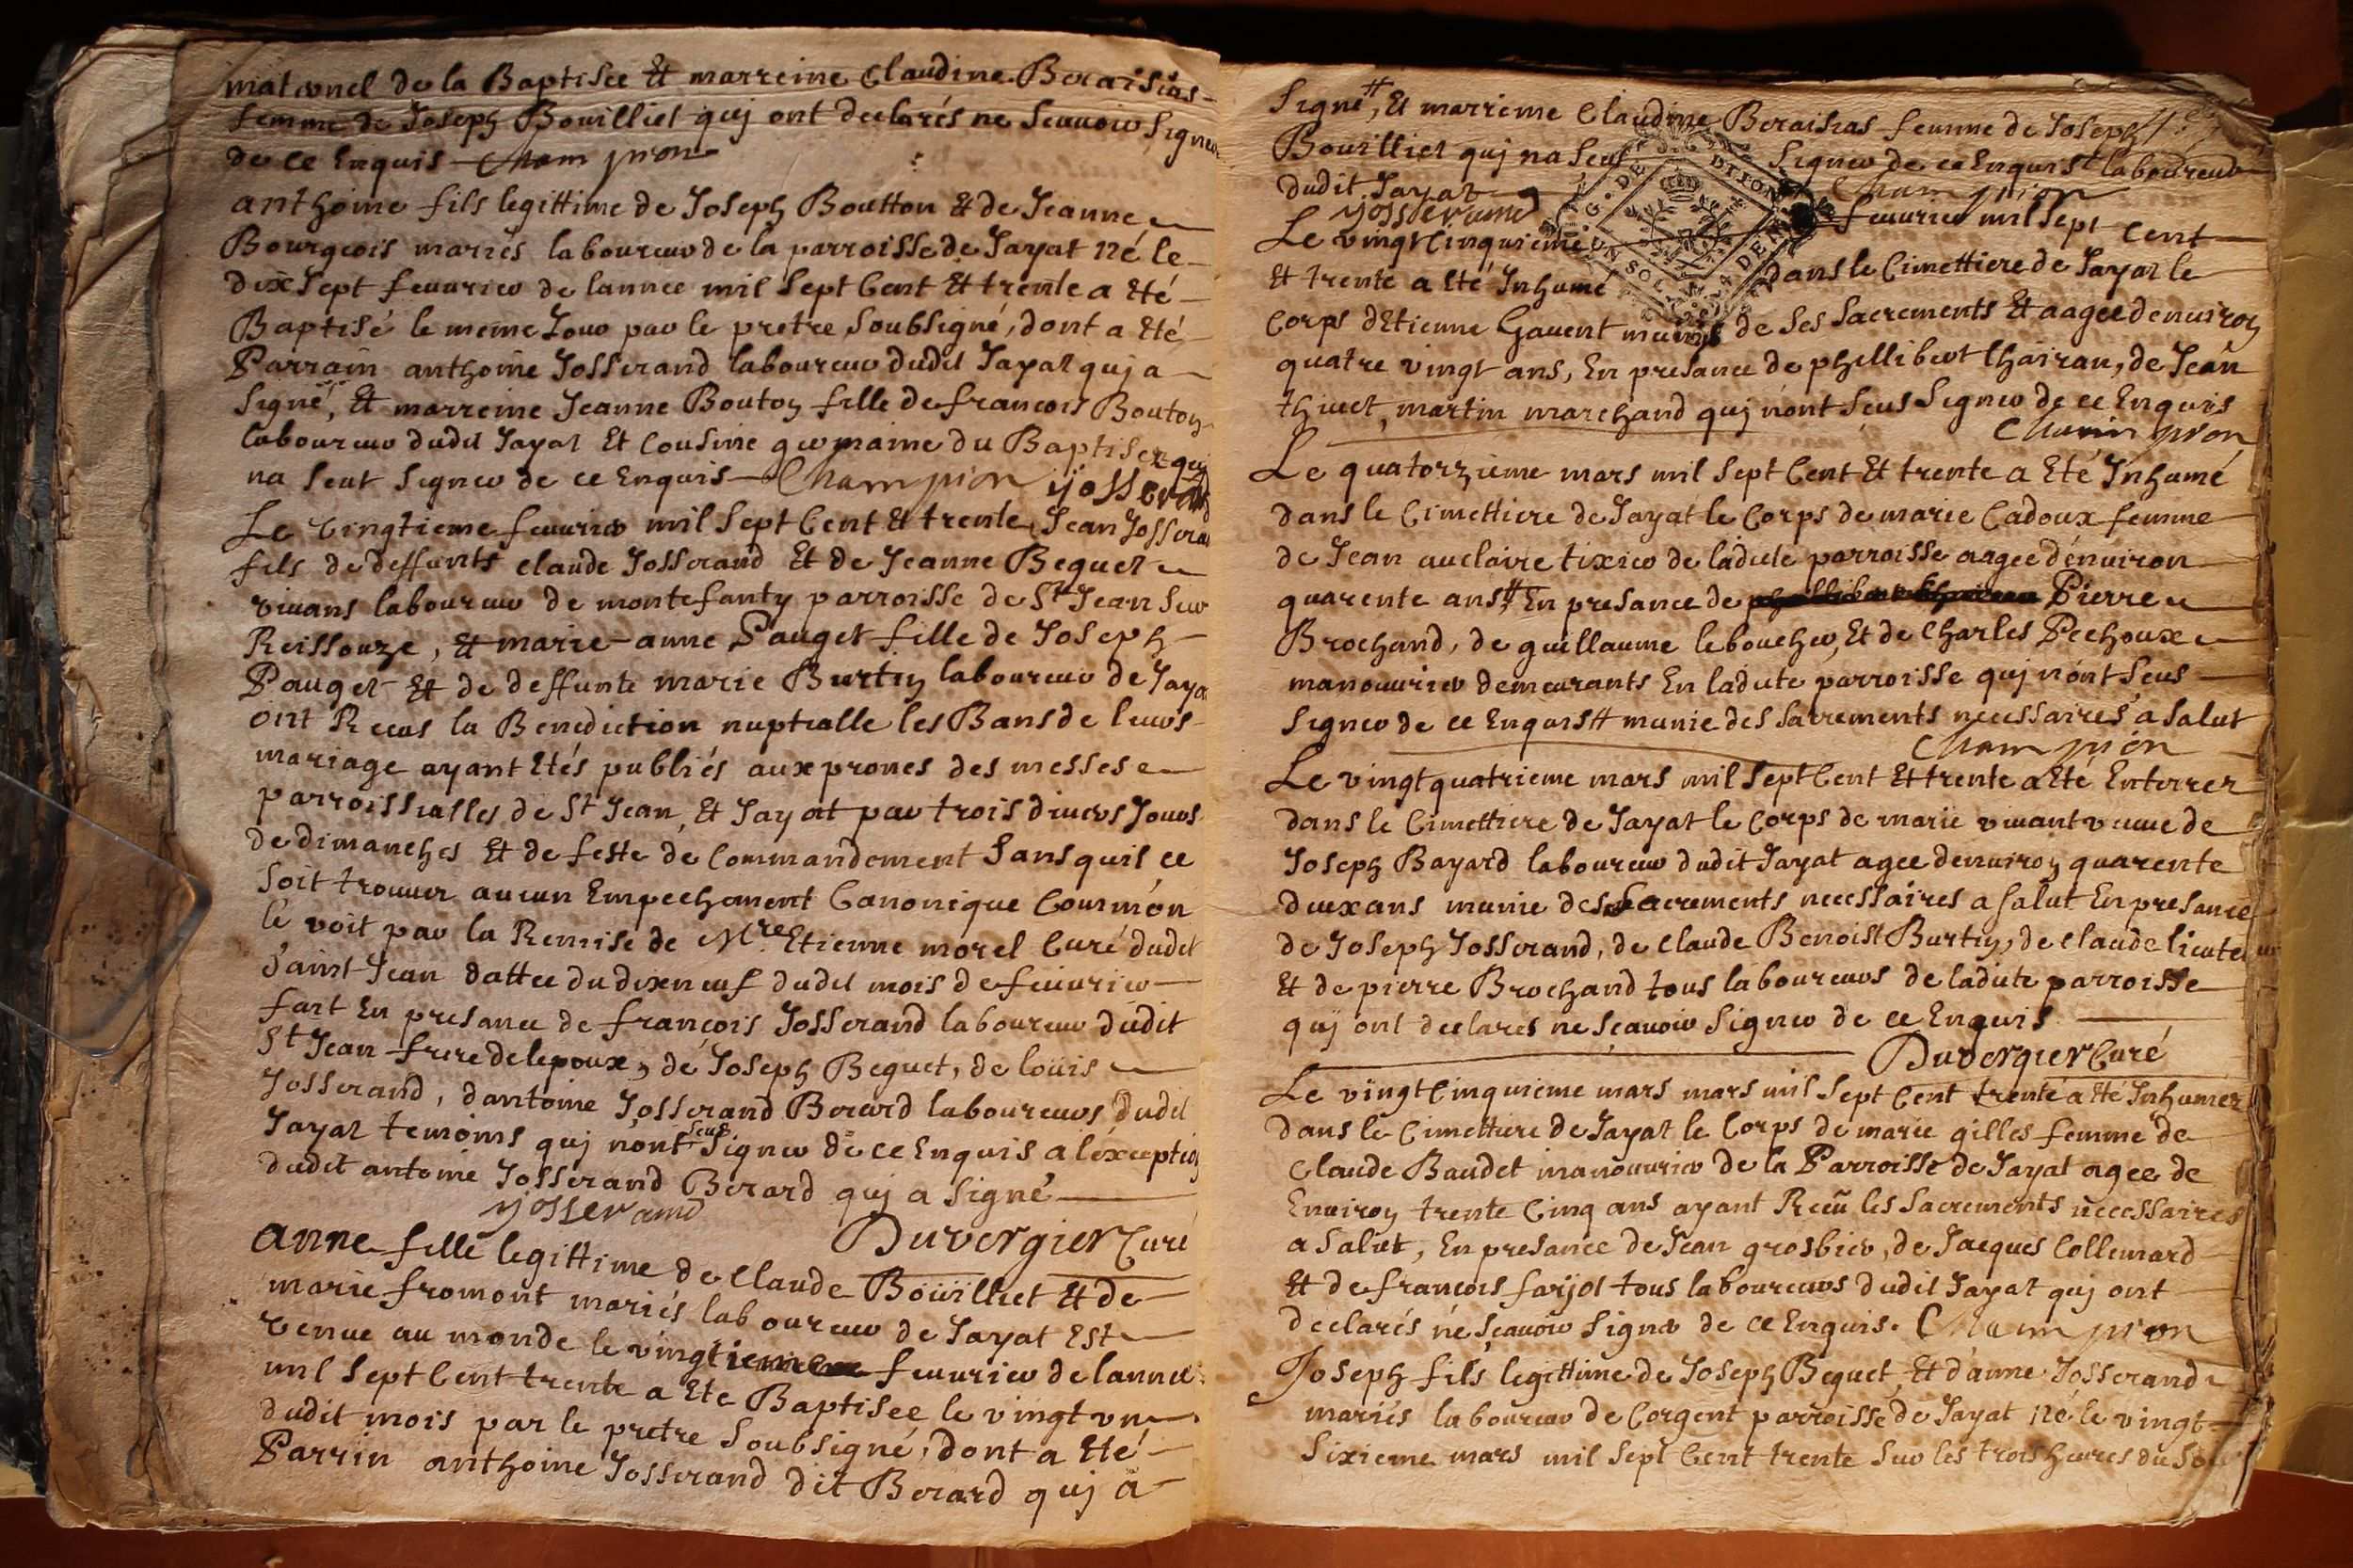 maternel de la Baptisee Et marreine Claudine Beraisias
femme de Joseph Bouilliet quj ont declarés ne Scauoir Signer
de ce Enquis Champion
anthoine fils legittime de Joseph Boutton Et de Jeanne
Bourgeois mariés laboureur de la parroisse de Jayat né le
dix Sept feuurier de lannee mil Sept Cent Et trente a Eté
Baptisé le meme Jour par le pretre Soubsigné, dont a Eté
Parrain anthoine Josserand laboureur dudit Jayat quj a
Signé, Et marreine Jeanne Bouton fille de francois Bouton
laboureur dudit Jayat Et Cousine germaine du Baptisez quj
na Seut Signer de ce Enquis Champion yosserand
Le vingtieme feuurier mil Sept Cent Et trente Jean Josserand
fils de deffunts claude Josserand Et de Jeanne Beguet
viuans laboureur de montefanty parroisse de St Jean Sur
Reissouze, Et marie-anne Pauget fille de Joseph
Pauget Et de deffunte marie Burtin laboureur de Jayat
ont Recus la Benediction nuptialle les Bans de leurs
mariage ayant Etés publiés aux prones des messes
parroissialles de St Jean, Et Jayat par trois diuers Jours
de dimanches Et de feste de Commandement Sans quil ce
Soit trouuer aucun Empechement Canonique Common
le voit par la Remise de Mre Etienne morel Curé dudit
Saint Jean dattee du dixneuf dudit mois de feuurier
fait En presance de françois Josserand laboureur dudit
St Jean frere de lepoux, de Joseph Beguet, de loüis
Josserand, dantoine Josserand Berard laboureurs dudit
Jayat temoins quj nont Seus Signer de ce Enquis a léxception
dudit antoine Josserand Berard quj a Signé
yosserand Duvergier Curé
anne fille legittime de Claude Boüilliet Et de
marie fromont mariés laboureur de Jayat Est
venue au monde le vingtieme feuurier de lannee
mil Sept Cent trente a Ete Baptisée le vingt un
dudit mois par le pretre Soubsigné, dont a Eté
Parrin anthoine Josserand dit Berard quj a
Signé, Et marreine Claudine Beraisias femme de Joseph
Bouilliet quj na Seut Signer de ce Enquis laboureur
dudit Jayat Champion
yosserand
Le vingt Cinquieme feuurier mil Sept Cent
Et trente a Eté Inhumé dans le Cimettiere de Jayat le
Corps dEtienne Gauent munis de Ses Sacrements Et aagee denuiron
quatre vingt ans, En presance de phillibert Chairan, de Jean
thiuet, martin marchand quj nont Seus Signer de ce Enquis
Champion
Le quatorzieme mars mil Sept Cent Et trente a Eté Inhumé
dans le Cimettiere de Jayat le Corps de marie Cadoux femme
de Jean auclaire tixier de ladite parroisse aagee dénuiron
quarente ans, En presance de Pierre
Brochand, de guillaume leboucher, Et de Charles Pechoux
manouurier demeurants En ladite parroisse quj nont Seus
Signer de ce Enquis munie des Sacrements necessaires a Salut
Champion
Le vingt quatrieme mars mil Sept Cent Et trente a Eté Enterrer
dans le Cimettiere de Jayat le Corps de marie viuant veuue de
Joseph Bayard laboureur dudit Jayat agee denuiron quarente
deux ans munie des Sacrements necessaires a Salut En presance
de Joseph Josserand, de Claude Benoist Burtin, de claude
Et de pierre Brochand tous laboureurs de ladite parroisse
quj ont declares ne Sçauoir Signer de ce Enquis
Duvergier Curé
Le vingt Cinquieme mars mars mil Sept Cent trente a Eté Inhumer
dans le Cimettiere de Jayat le Corps de marie gilles femme de
Claude Baudet manouurier de la Parroisse de Jayat agee de
Enuiron trente Cinq ans ayant Receu les Sacrements necessaires
a Salut, En presance de Jean grosbier, de Jacques Collemard
Et de francois farjot tous laboureurs dudit Jayat quj ont
declarés ne Sçauoir Signer de ce Enquis. Champion
Joseph fils legittime de Joseph Beguet, Et d'anne Josserand
mariés laboureur de Corgent parroisse de Jayat né le vingt
Sixieme mars mil Sept Cent trente Sur les trois heures du Soir